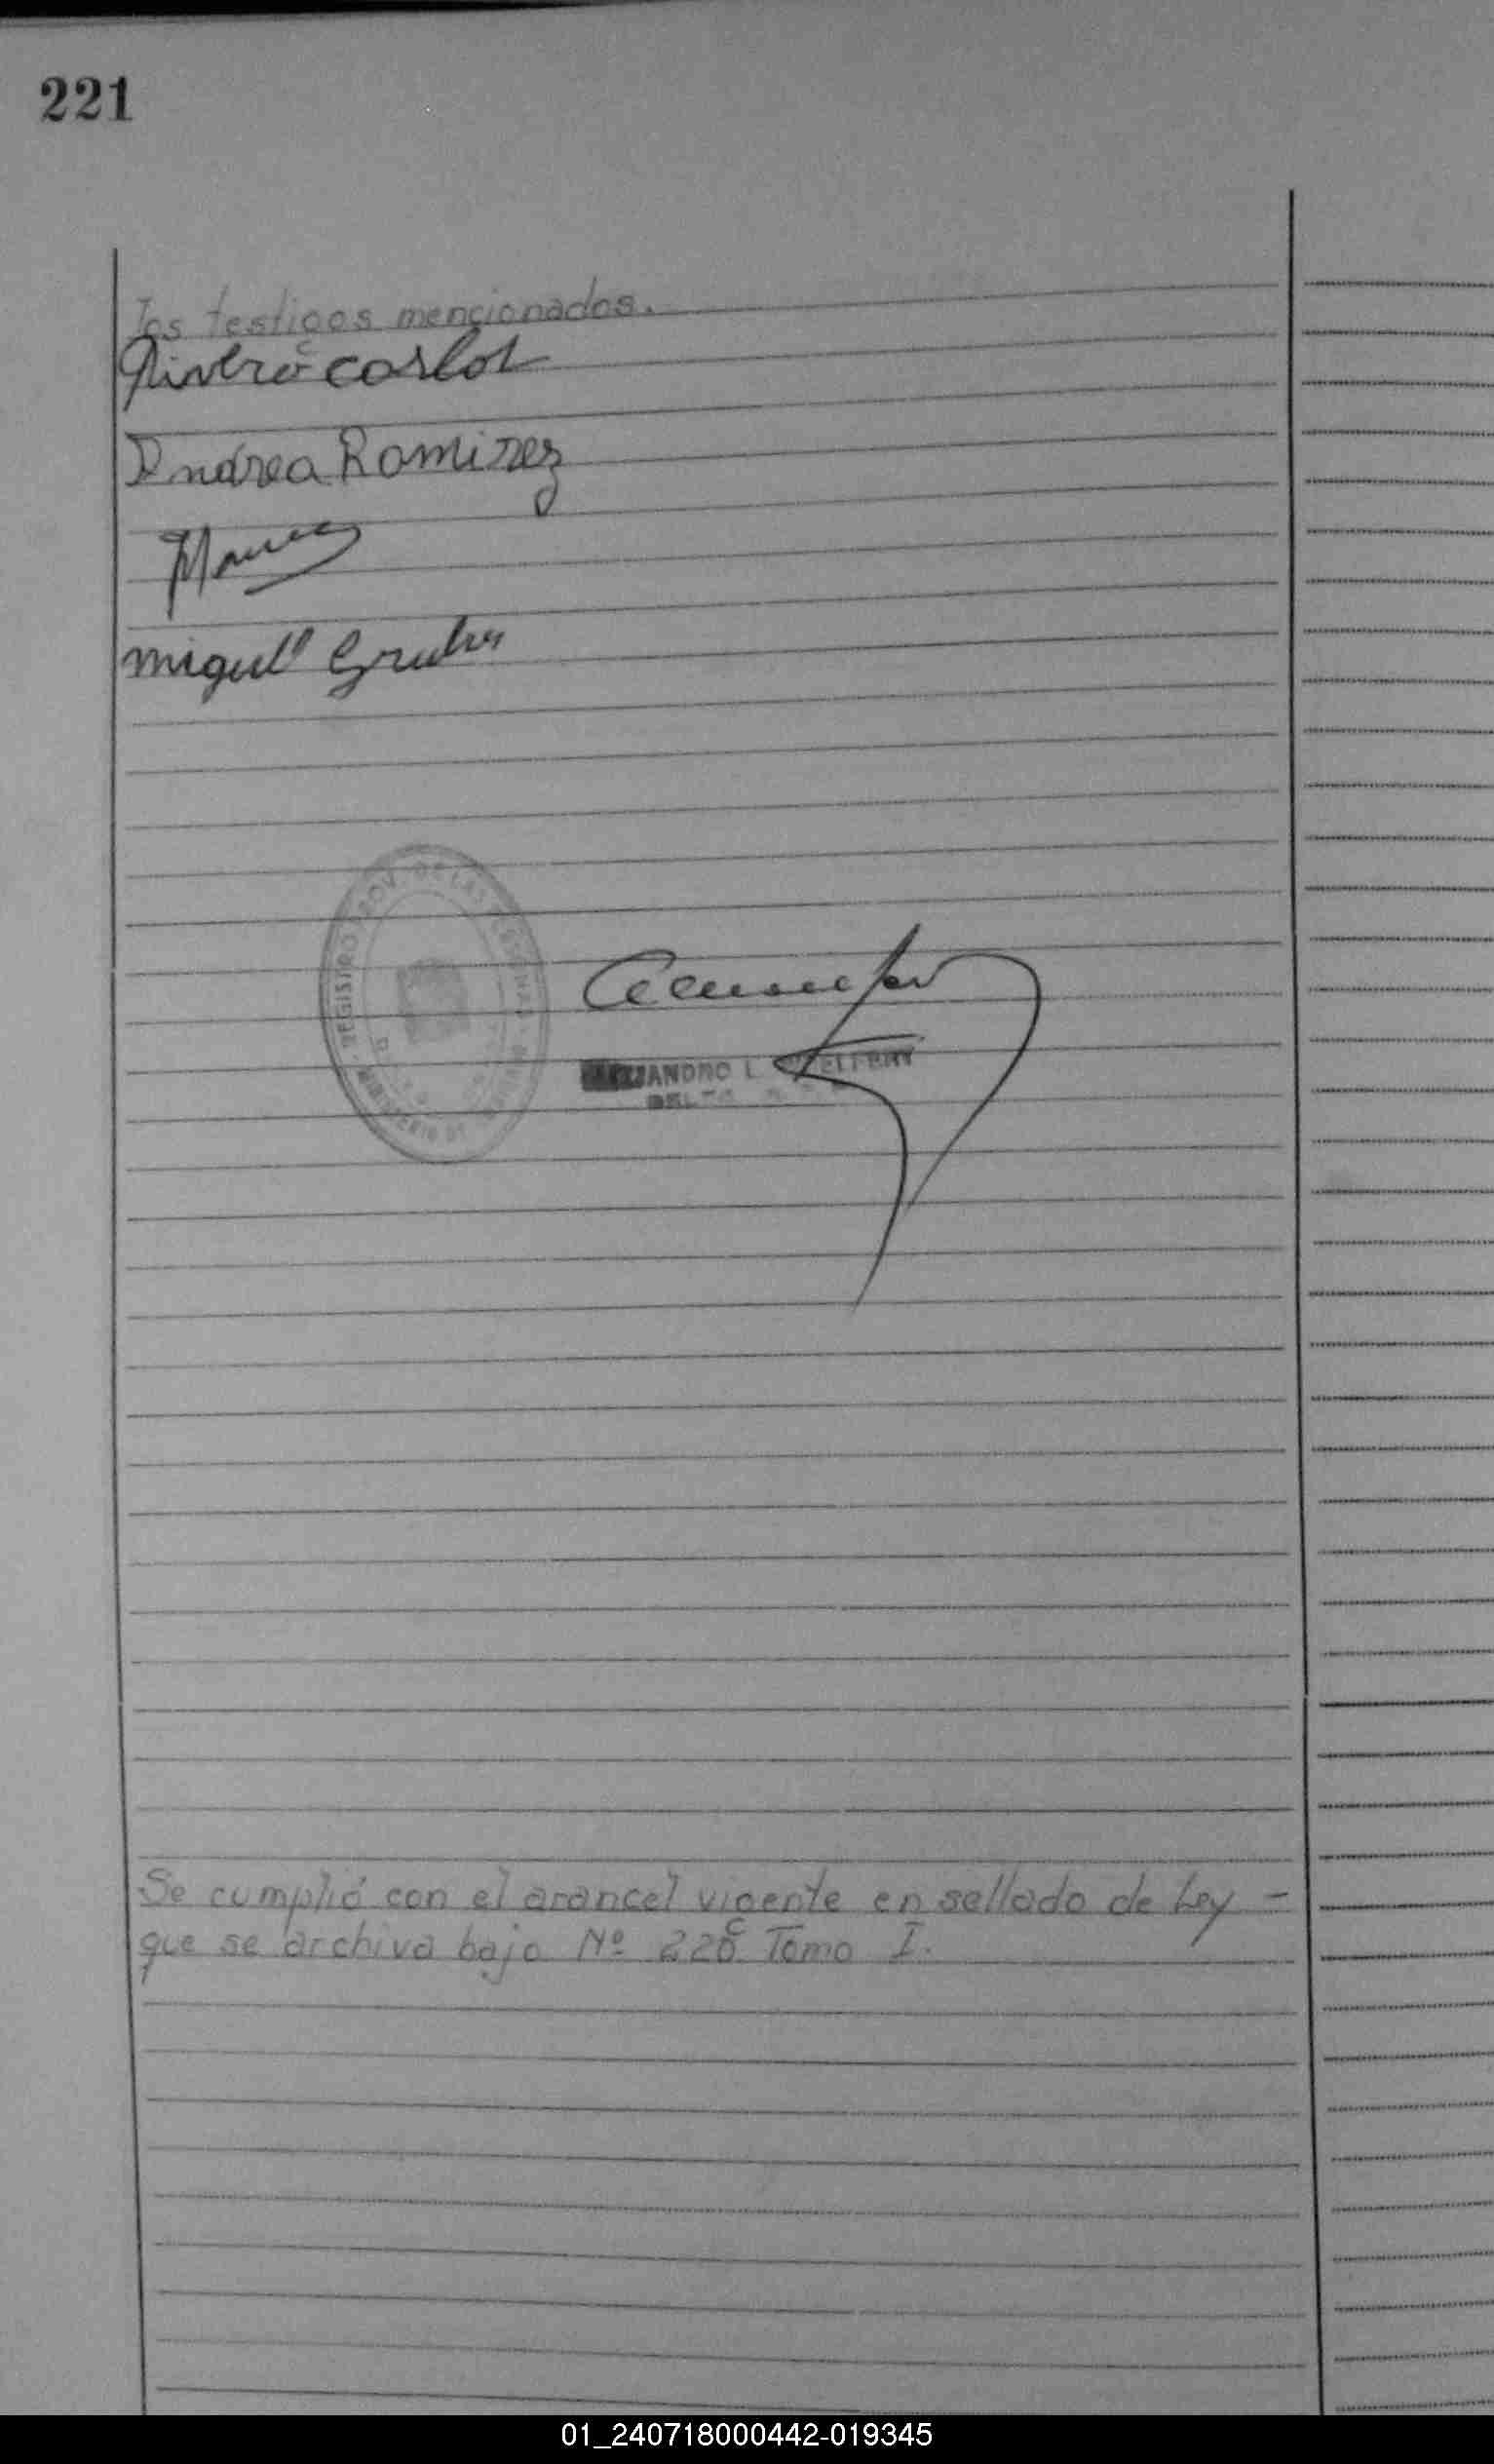 221
los testigos mencionados.
Rivero Carlos
Andrea Ramirez
Miguel Gruber
REGISTRO PROV. DE LAS PERSONAS
MINISTERIO DE
ANDRO L.
Se cumplió con el arancel vigente en sellado de Ley -
que se archiva bajo Nº 220 Tomo I.
01_240718000442-019345